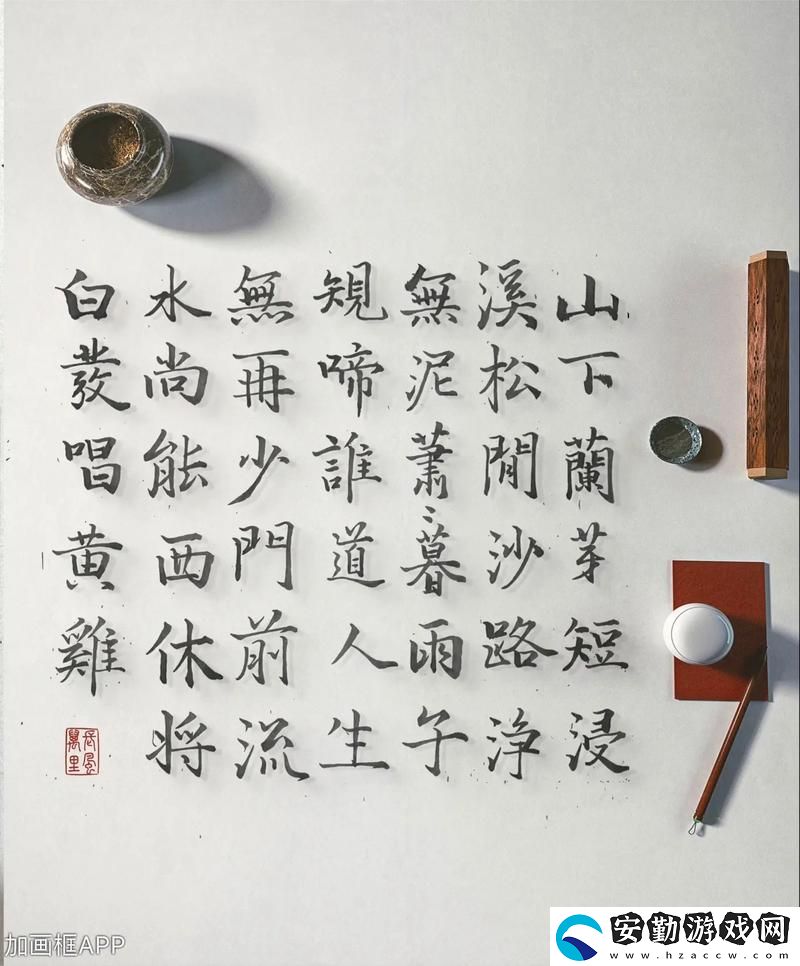 山下蘭芽短浸
溪松閒沙路淨
無泥蕭〻暮雨子
䂓啼誰道人生
無再少門前流
水尚能西休将
白發唱黄雞
長風萬里
加画框APP
安勤游戏网
www.hzaccw.com